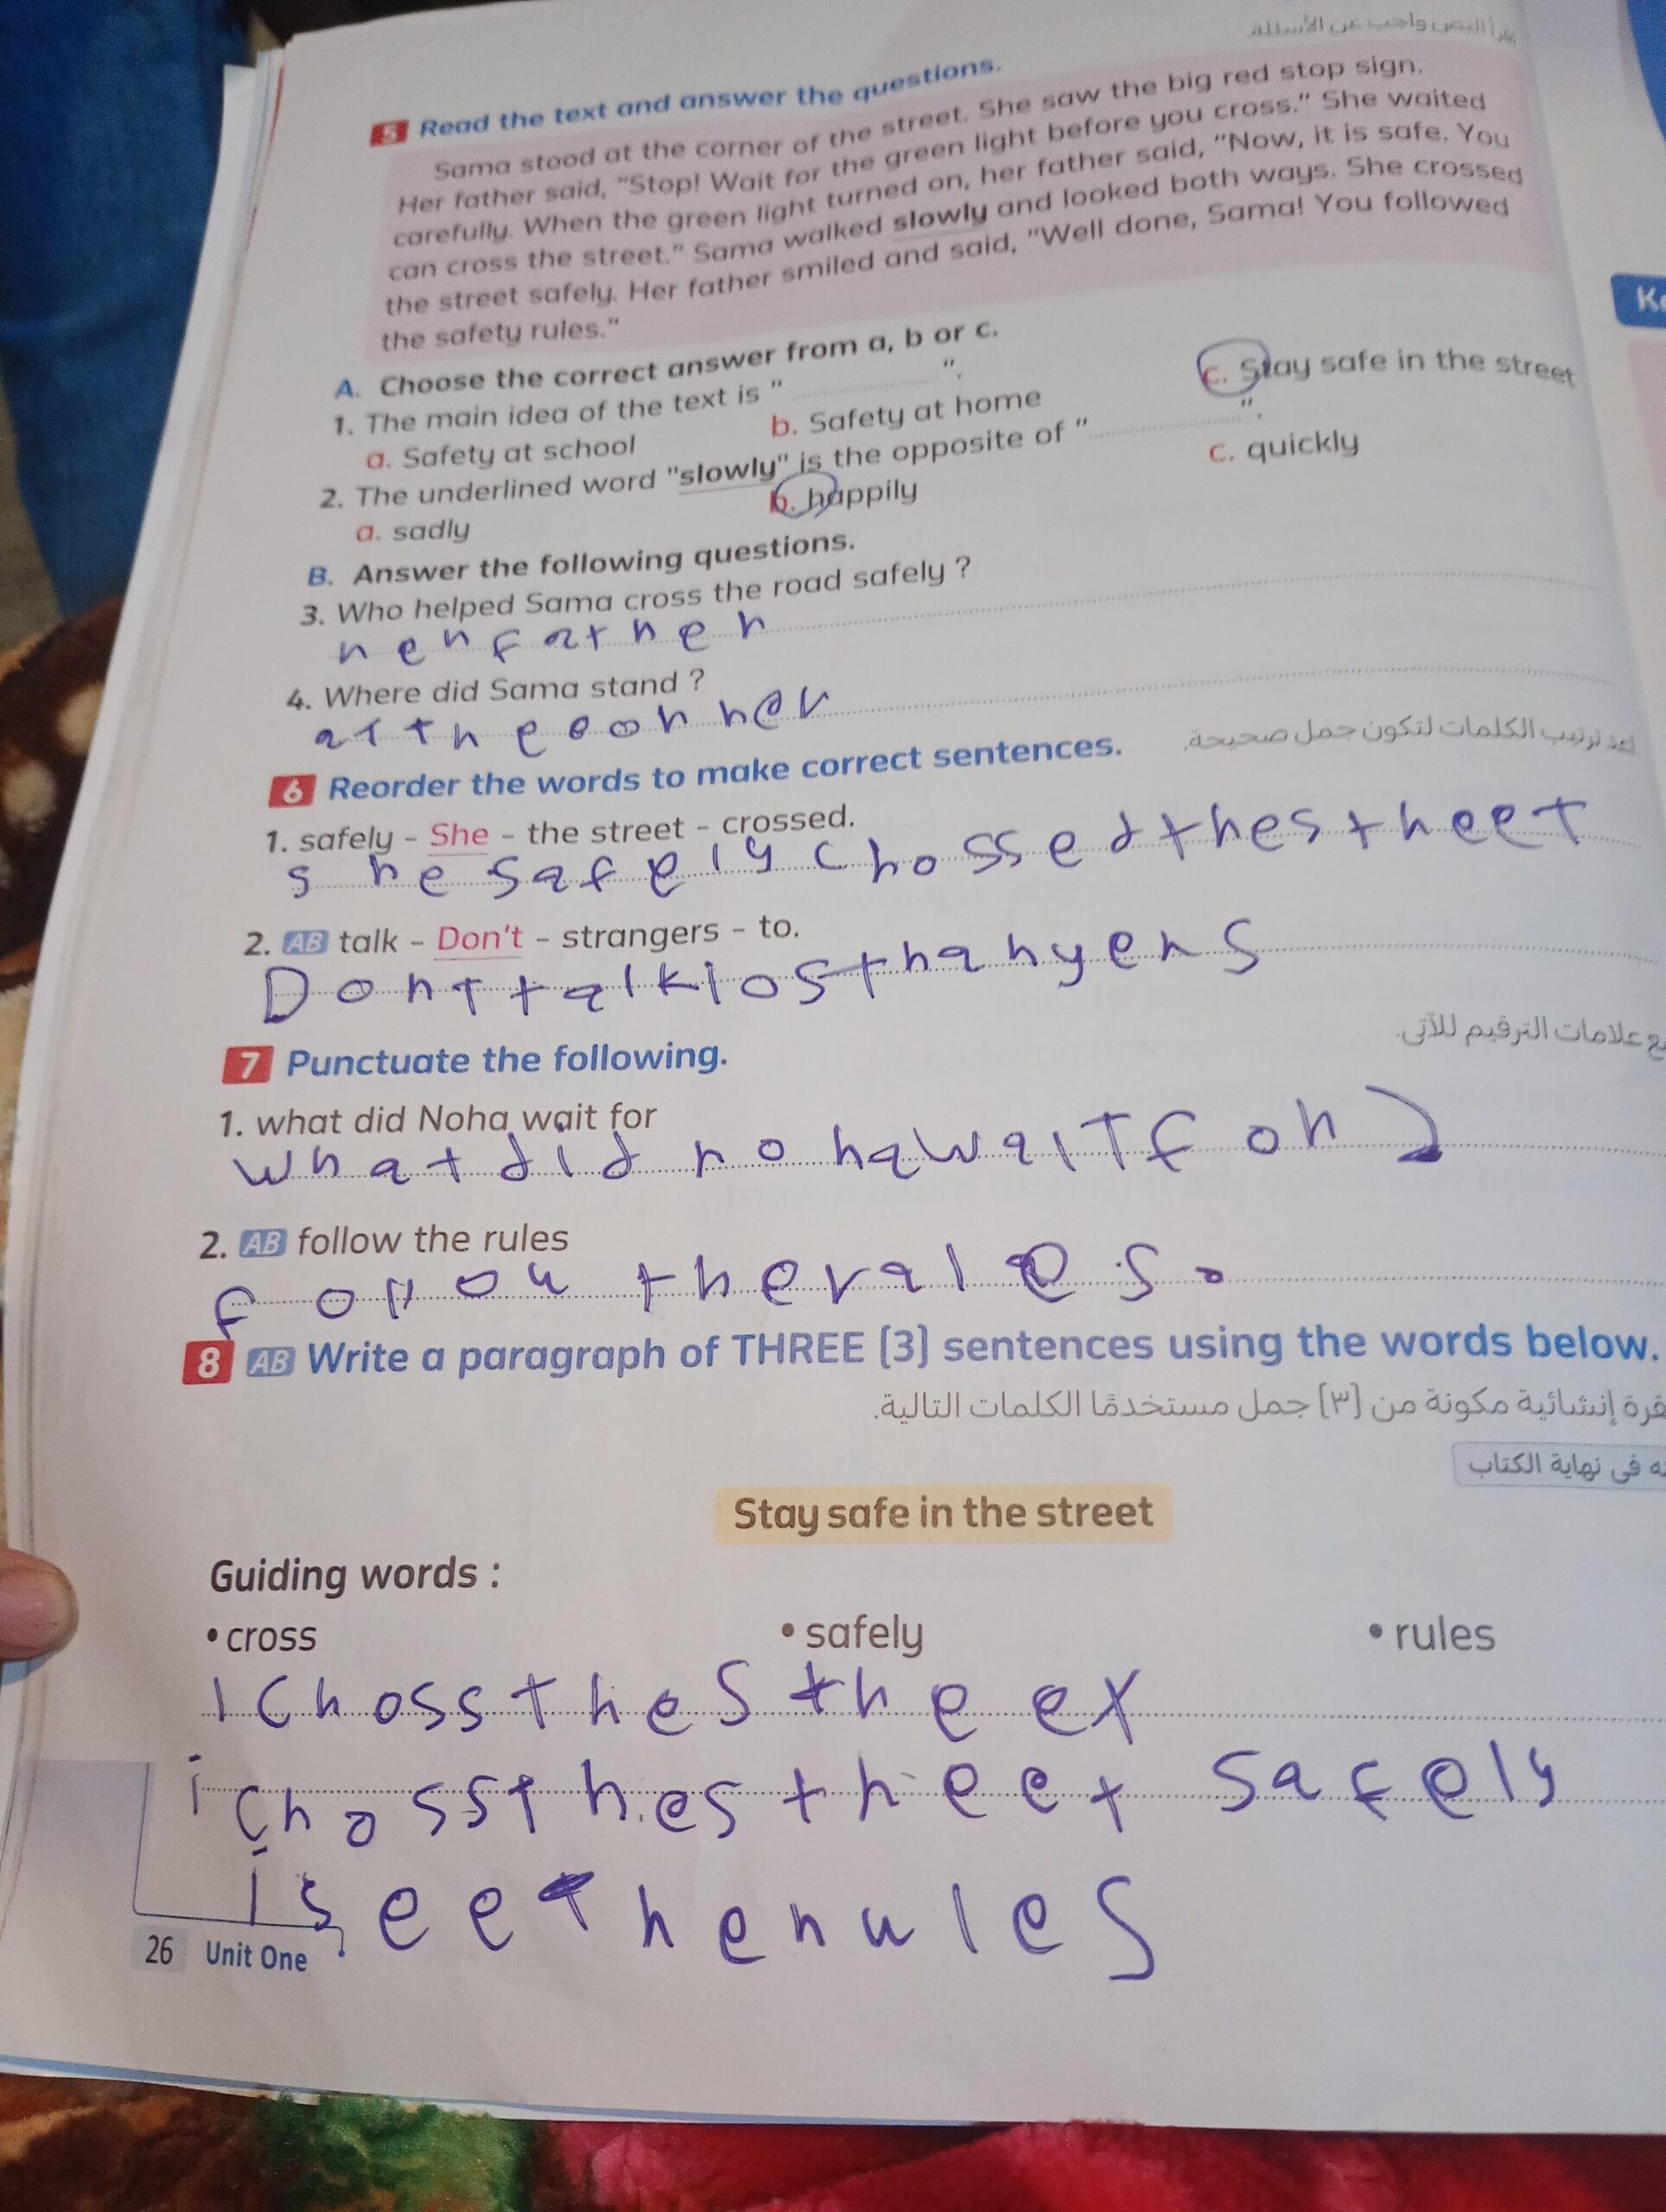 اقرأ النص وأجب عن الأسئلة
5 Read the text and answer the questions.
Sama stood at the corner of the street. She saw the big red stop sign.
Her father said, "Stop! Wait for the green light before you cross." She waited
carefully. When the green light turned on, her father said, "Now, it is safe. You
can cross the street." Sama walked slowly and looked both ways. She crossed
the street safely. Her father smiled and said, "Well done, Sama! You followed
the safety rules."
A. Choose the correct answer from a, b or c.
1. The main idea of the text is " ............ ".
a. Safety at school b. Safety at home c. Stay safe in the street
2. The underlined word "slowly" is the opposite of " ............ ".
a. sadly b. happily c. quickly
B. Answer the following questions.
3. Who helped Sama cross the road safely ?
hen father
4. Where did Sama stand ?
at the conner
6 Reorder the words to make correct sentences.
أعد ترتيب الكلمات لتكون جمل صحيحة.
1. safely - She - the street - crossed.
she safely chossed the stheet
2. AB talk - Don't - strangers - to.
Dont talk to sthanyens
7 Punctuate the following.
علامات الترقيم للآتى.
1. what did Noha wait for
what did noha wait foh ?
2. AB follow the rules
follow the rales.
8 AB Write a paragraph of THREE (3) sentences using the words below.
إنشائية مكونة من (٣) جمل مستخدمًا الكلمات التالية.
فى نهاية الكتاب
Stay safe in the street
Guiding words :
• cross • safely • rules
I choss the stheet
i choss the stheet safely
I see the nules
26 Unit One